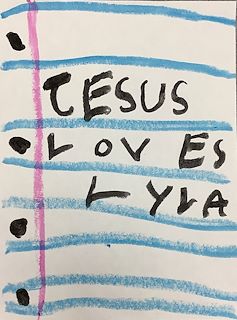 JESUS
LOVES
LYLA